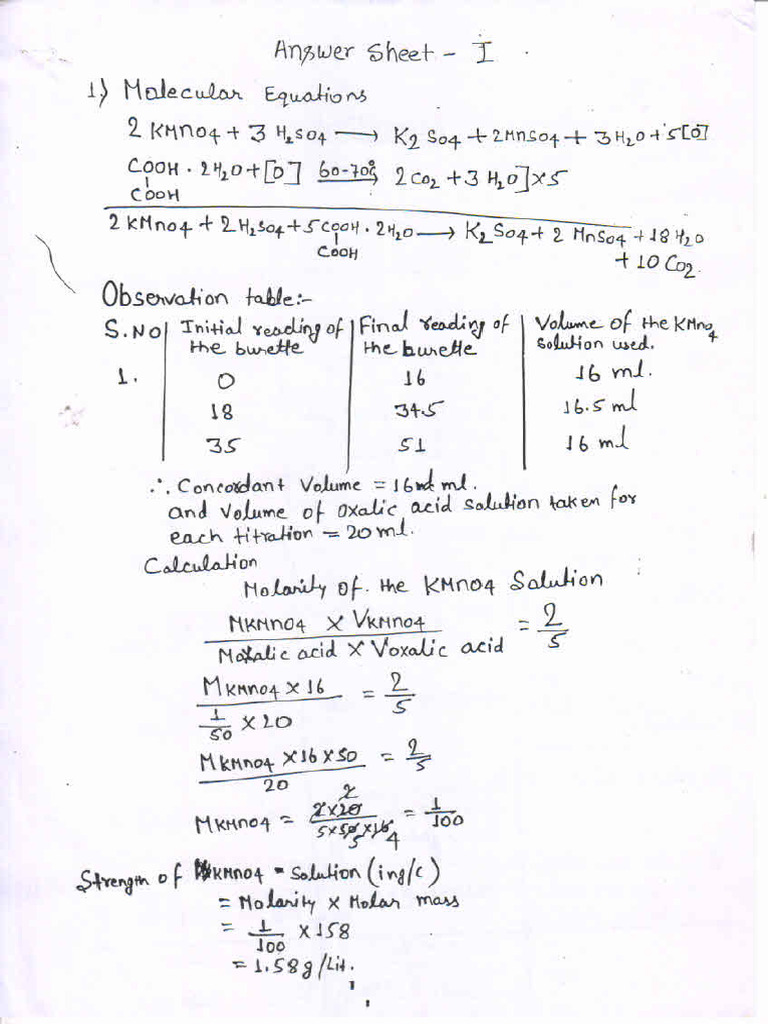 Answer Sheet - I .
1) Molecular Equations
2 KMnO4 + 3 H2SO4 ⟶ K2 SO4 + 2MnSO4 + 3 H2O + 5[O]
COOH · 2H2O + [O] 60-70° 2 CO2 + 3 H2O] × 5
COOH
2 KMnO4 + 2 H2SO4 + 5 COOH · 2H2O ⟶ K2SO4 + 2 MnSO4 + 18 H2O
COOH
+ 10 CO2.
Observation table:-
S.NO | Initial reading of the burette | Final reading of the burette | Volume of the KMnO4 solution used.
1. | 0 | 16 | 16 ml.
18 | 34.5 | 16.5 ml
35 | 51 | 16 ml
∴ Concordant Volume = 16 ml.
and Volume of Oxalic acid solution taken for
each titration = 20 ml.
Calculation
Molarity of the KMnO4 Solution
MKMnO4 × VKMnO4 / Moxalic acid × Voxalic acid = 2/5
MKMnO4 × 16 / 1/50 × 20 = 2/5
MKMnO4 × 16 × 50 / 20 = 2/5
MKMnO4 = 2×20 / 5×50×16 = 1/100
2
5 4
Strength of KMnO4 = Solution (ing/c)
= Molarity × Molar mass
= 1/100 × 158
= 1.58 g/Lit.